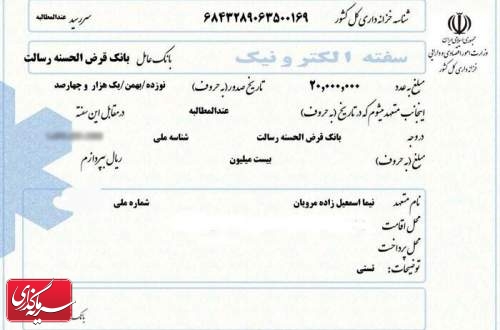 جمهوری اسلامی ایران
وزارت امور اقتصادی و دارایی
خزانه داری کل کشور
شناسه خزانه داری کل کشور ۶۸۴۳۲۸۹۰۶۳۵۰۰۱۶۹ سررسید عندالمطالبه
سفته الکترونیک بانک عامل بانک قرض الحسنه رسالت
مبلغ به عدد ۲۰,۰۰۰,۰۰۰ تاریخ صدور (به حروف) نوزده/بهمن/یک هزار و چهارصد
اینجانب متعهد میشوم که در تاریخ (به حروف) عندالمطالبه در مقابل این سفته
در وجه بانک قرض الحسنه رسالت شناسه ملی
مبلغ (به حروف) بیست میلیون ریال بپردازم
نام متعهد نیما اسمعیل زاده مرویان شماره ملی
محل اقامت
محل پرداخت
توضیحات: تستی
سرمایه گذاری
بانک